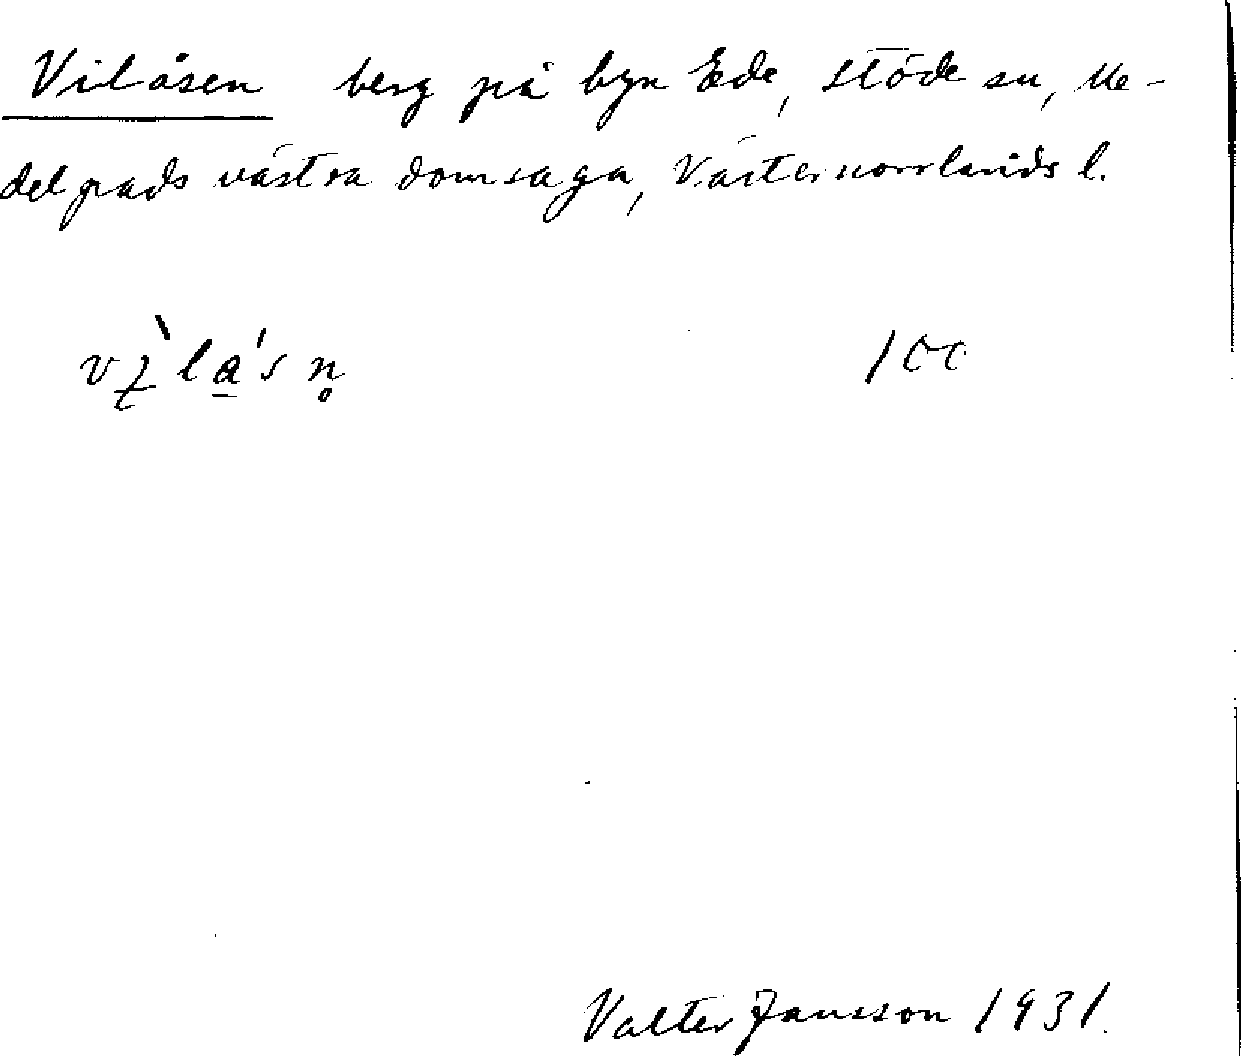 Vilåsen berg på byn Ede, Stöde sn, Me-
delpads västra domsaga, Västernorrlands l.
100
Valter Jansson 1931.